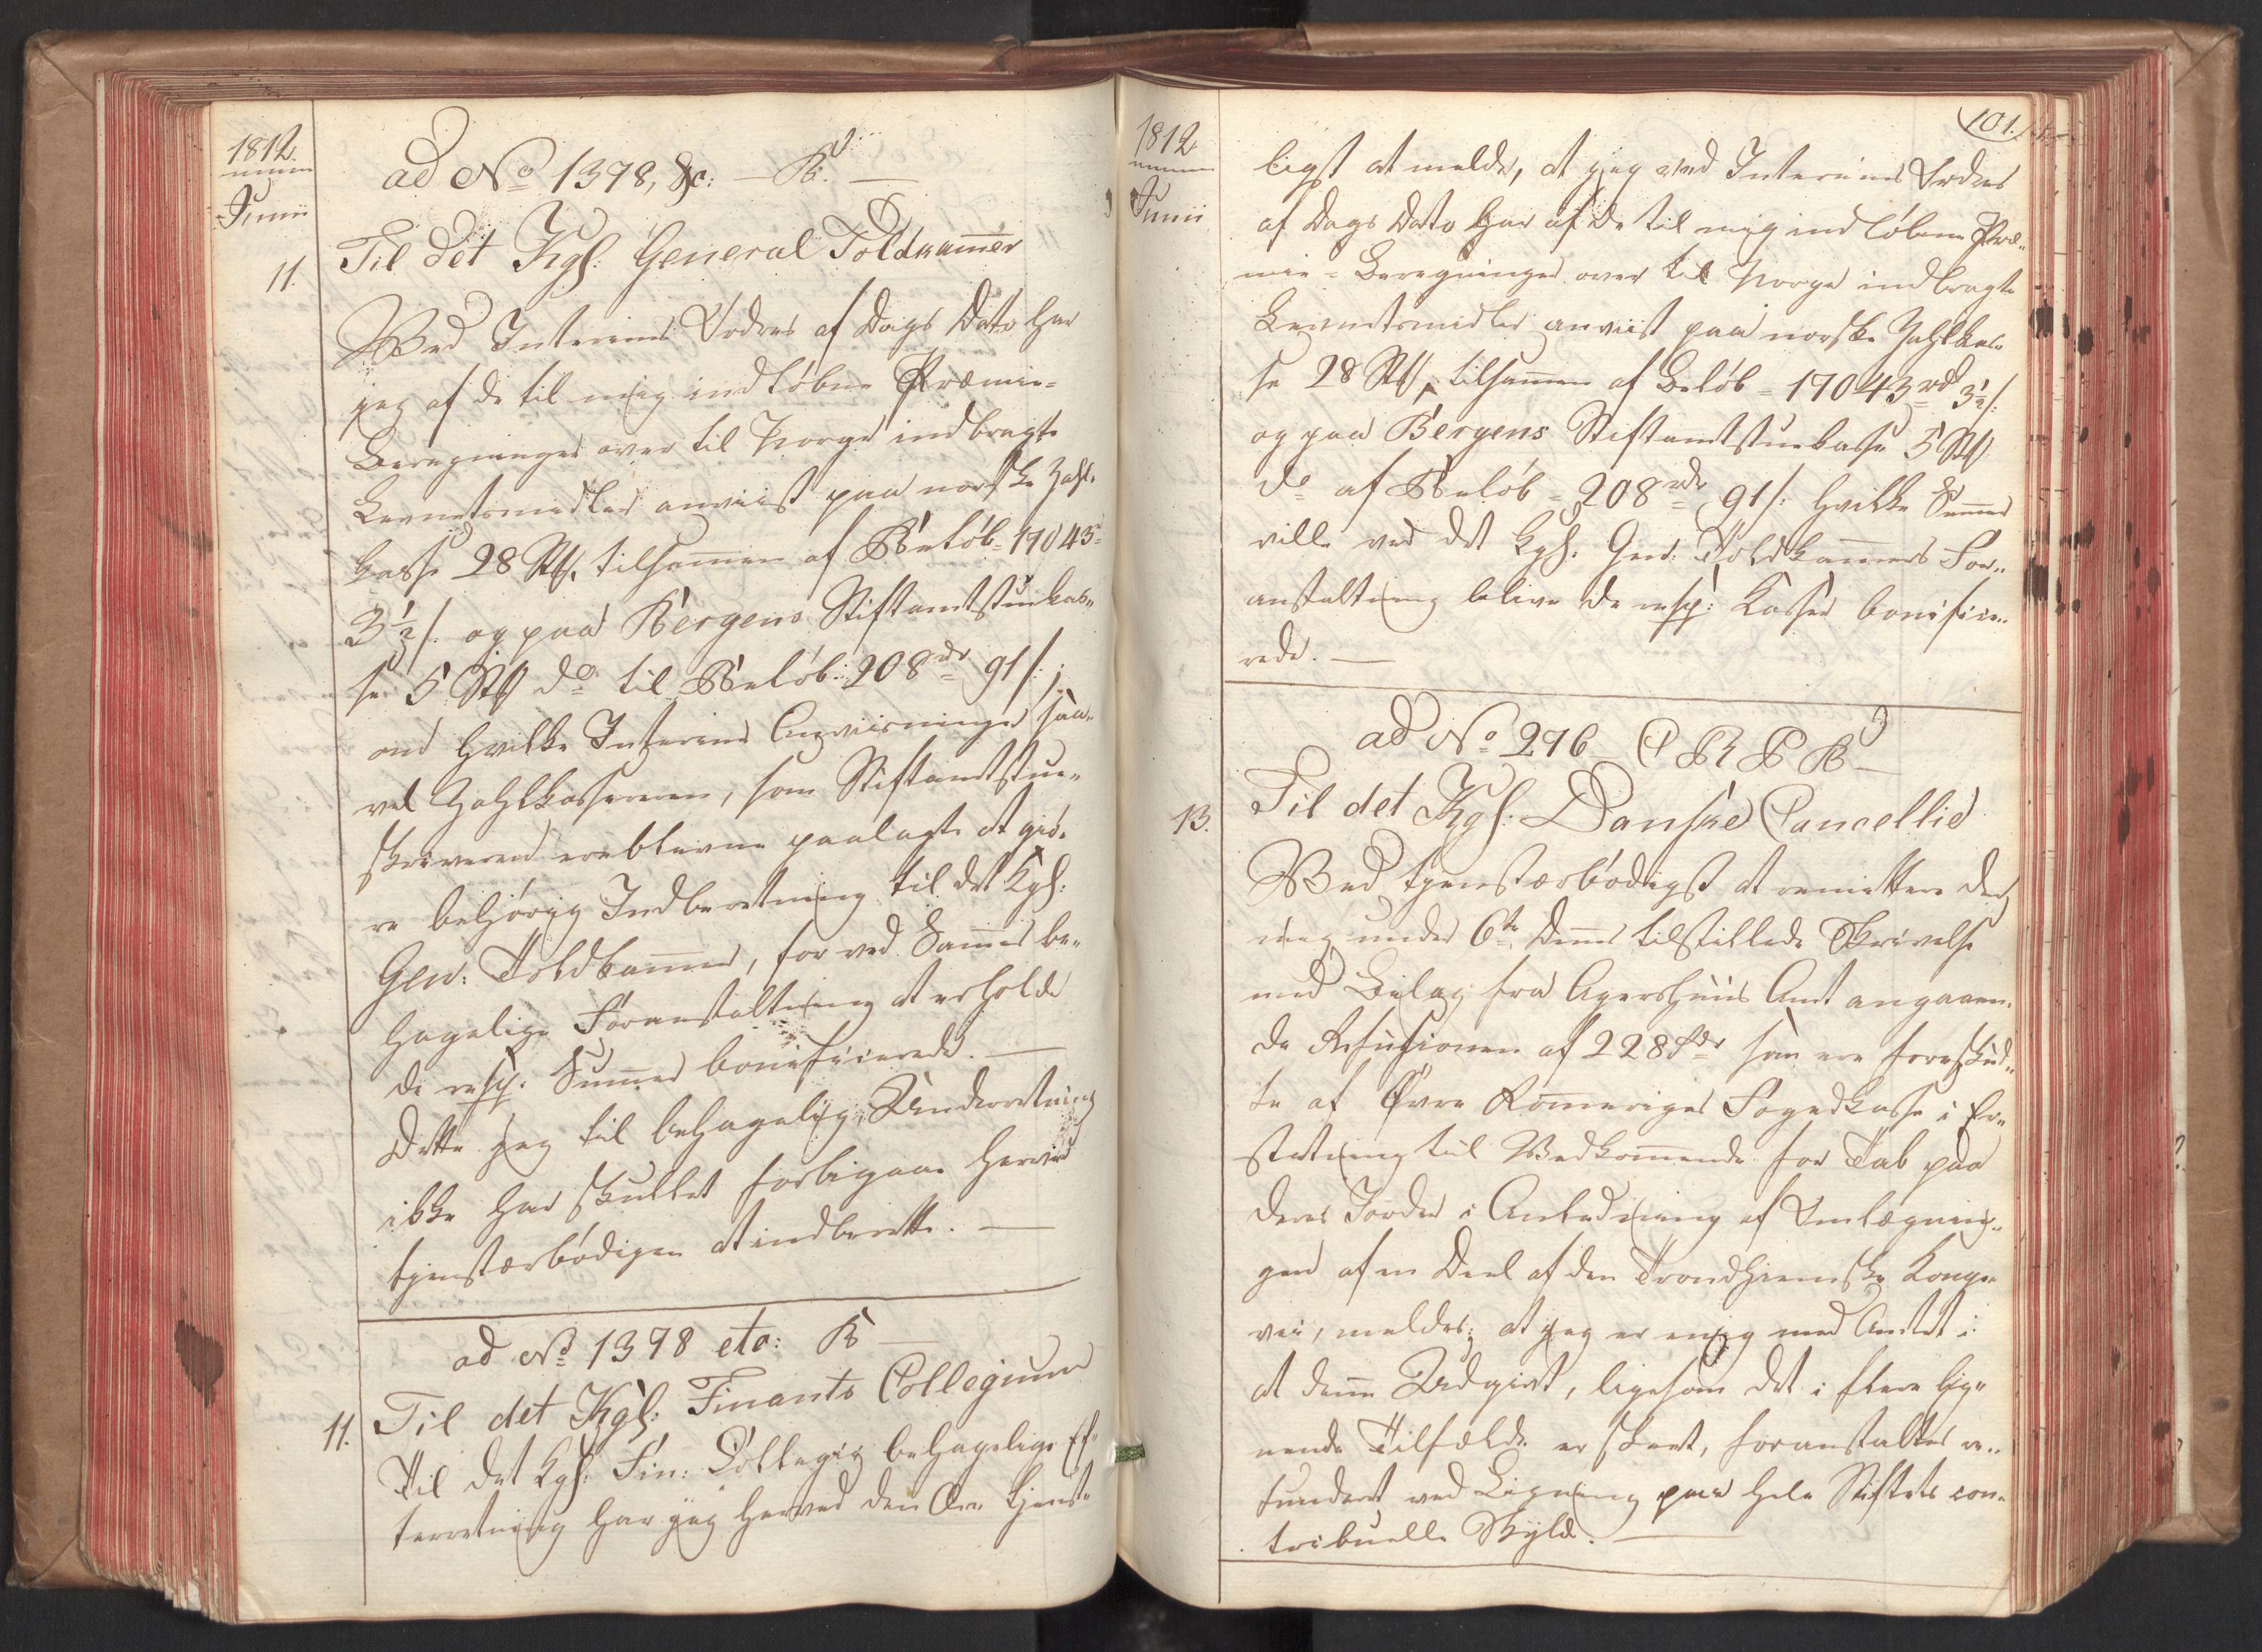 1812.
Junii
ad No 1398, &c: — B. —
11.
Til det Kgl: General Toldkam̅er
Ved Interims Ordres af Dags Dato har
jeg af de til mig indløbne Præmie-
Beregninger over til Norge indbragte
Levnetsmidler anviist paa norske Zahl-
kasse 28 St., tilsam̅en af Beløb 17043 rd
3½ s. og paa Bergens Stiftamtstuekas-
se 5 St do til Beløb 208 rdr 91 s.;
om hvilke Interims Anviisninger saa-
vel Zahlkassereren, som Stiftamtstue-
skriveren ere blevne paalagte at giö-
re behørig Indberetning til det Kgl:
Gen: Toldkam̅er, for ved Sam̅es be-
hagelige Foranstaltning at erholde
de resp: Sum̅er bonificerede. —
Dette jeg til behagelig Underretning
ikke har skullet forbigaae herved
tjenstærbødigen at indberette. —
ad No 1398 etc: B —
11.
Til det Kgl: Finants Collegium
Til det Kgl: Fin: Collegii behagelige Ef-
terretning har jeg herved den Ære tjenst-
1812
Junii
101.
ligst at melde, at jeg ved Interims Ordres
af Dags Dato har af de til mig indløbne Præ-
mie-Beregninger over til Norge indbragte
Levnetsmidler anviist paa norske Zahlkas-
se 28 St, tilsam̅en af Beløb 17043 rd 3½ s.
og paa Bergens Stiftamtstuekasse 5 St
do af Beløb 208 rdr 91 s: hvilke Sum̅er
ville ved det Kgl. Gen: Toldkam̅ers For-
anstaltning blive de resp: Kasser bonifice-
rede. —
ad No 296 C R P B —
13.
Til det Kgl: Danske Cancellie
Ved tjenstærbødigst at remittere den
mig under 6te dennes tilstillede Skrivelse
med Bilag fra Agershuus Amt angaaen-
de Refusionen af 228 rdr som ere forskud-
te af Øvre Romeriges Fogedkasse i Er-
statning til Vedkom̅ende for Tab paa
deres Jorder i Anledning af Omlægnin-
gen af en Deel af den Trondhiemske Konge-
vei, meldes; at jeg er enig med Amtet i
at den̅e Udgivt, ligesom det i flere lig-
nende Tilfælde er skeet, foranstaltes re-
funderet ved Ligning paa hele Stiftets con-
tribuelle Skyld. —